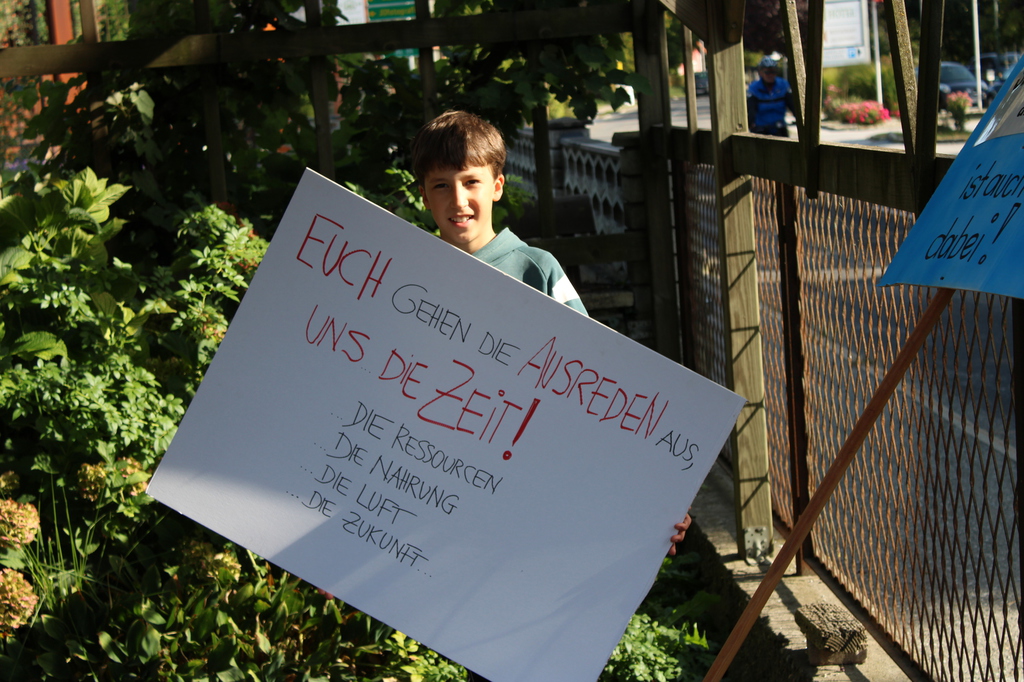 EUCH GEHEN DIE AUSREDEN AUS,
UNS ... DIE ZEIT!
... DIE RESSOURCEN
... DIE NAHRUNG
... DIE LUFT
... DIE ZUKUNFT...
ist auch
dabei!